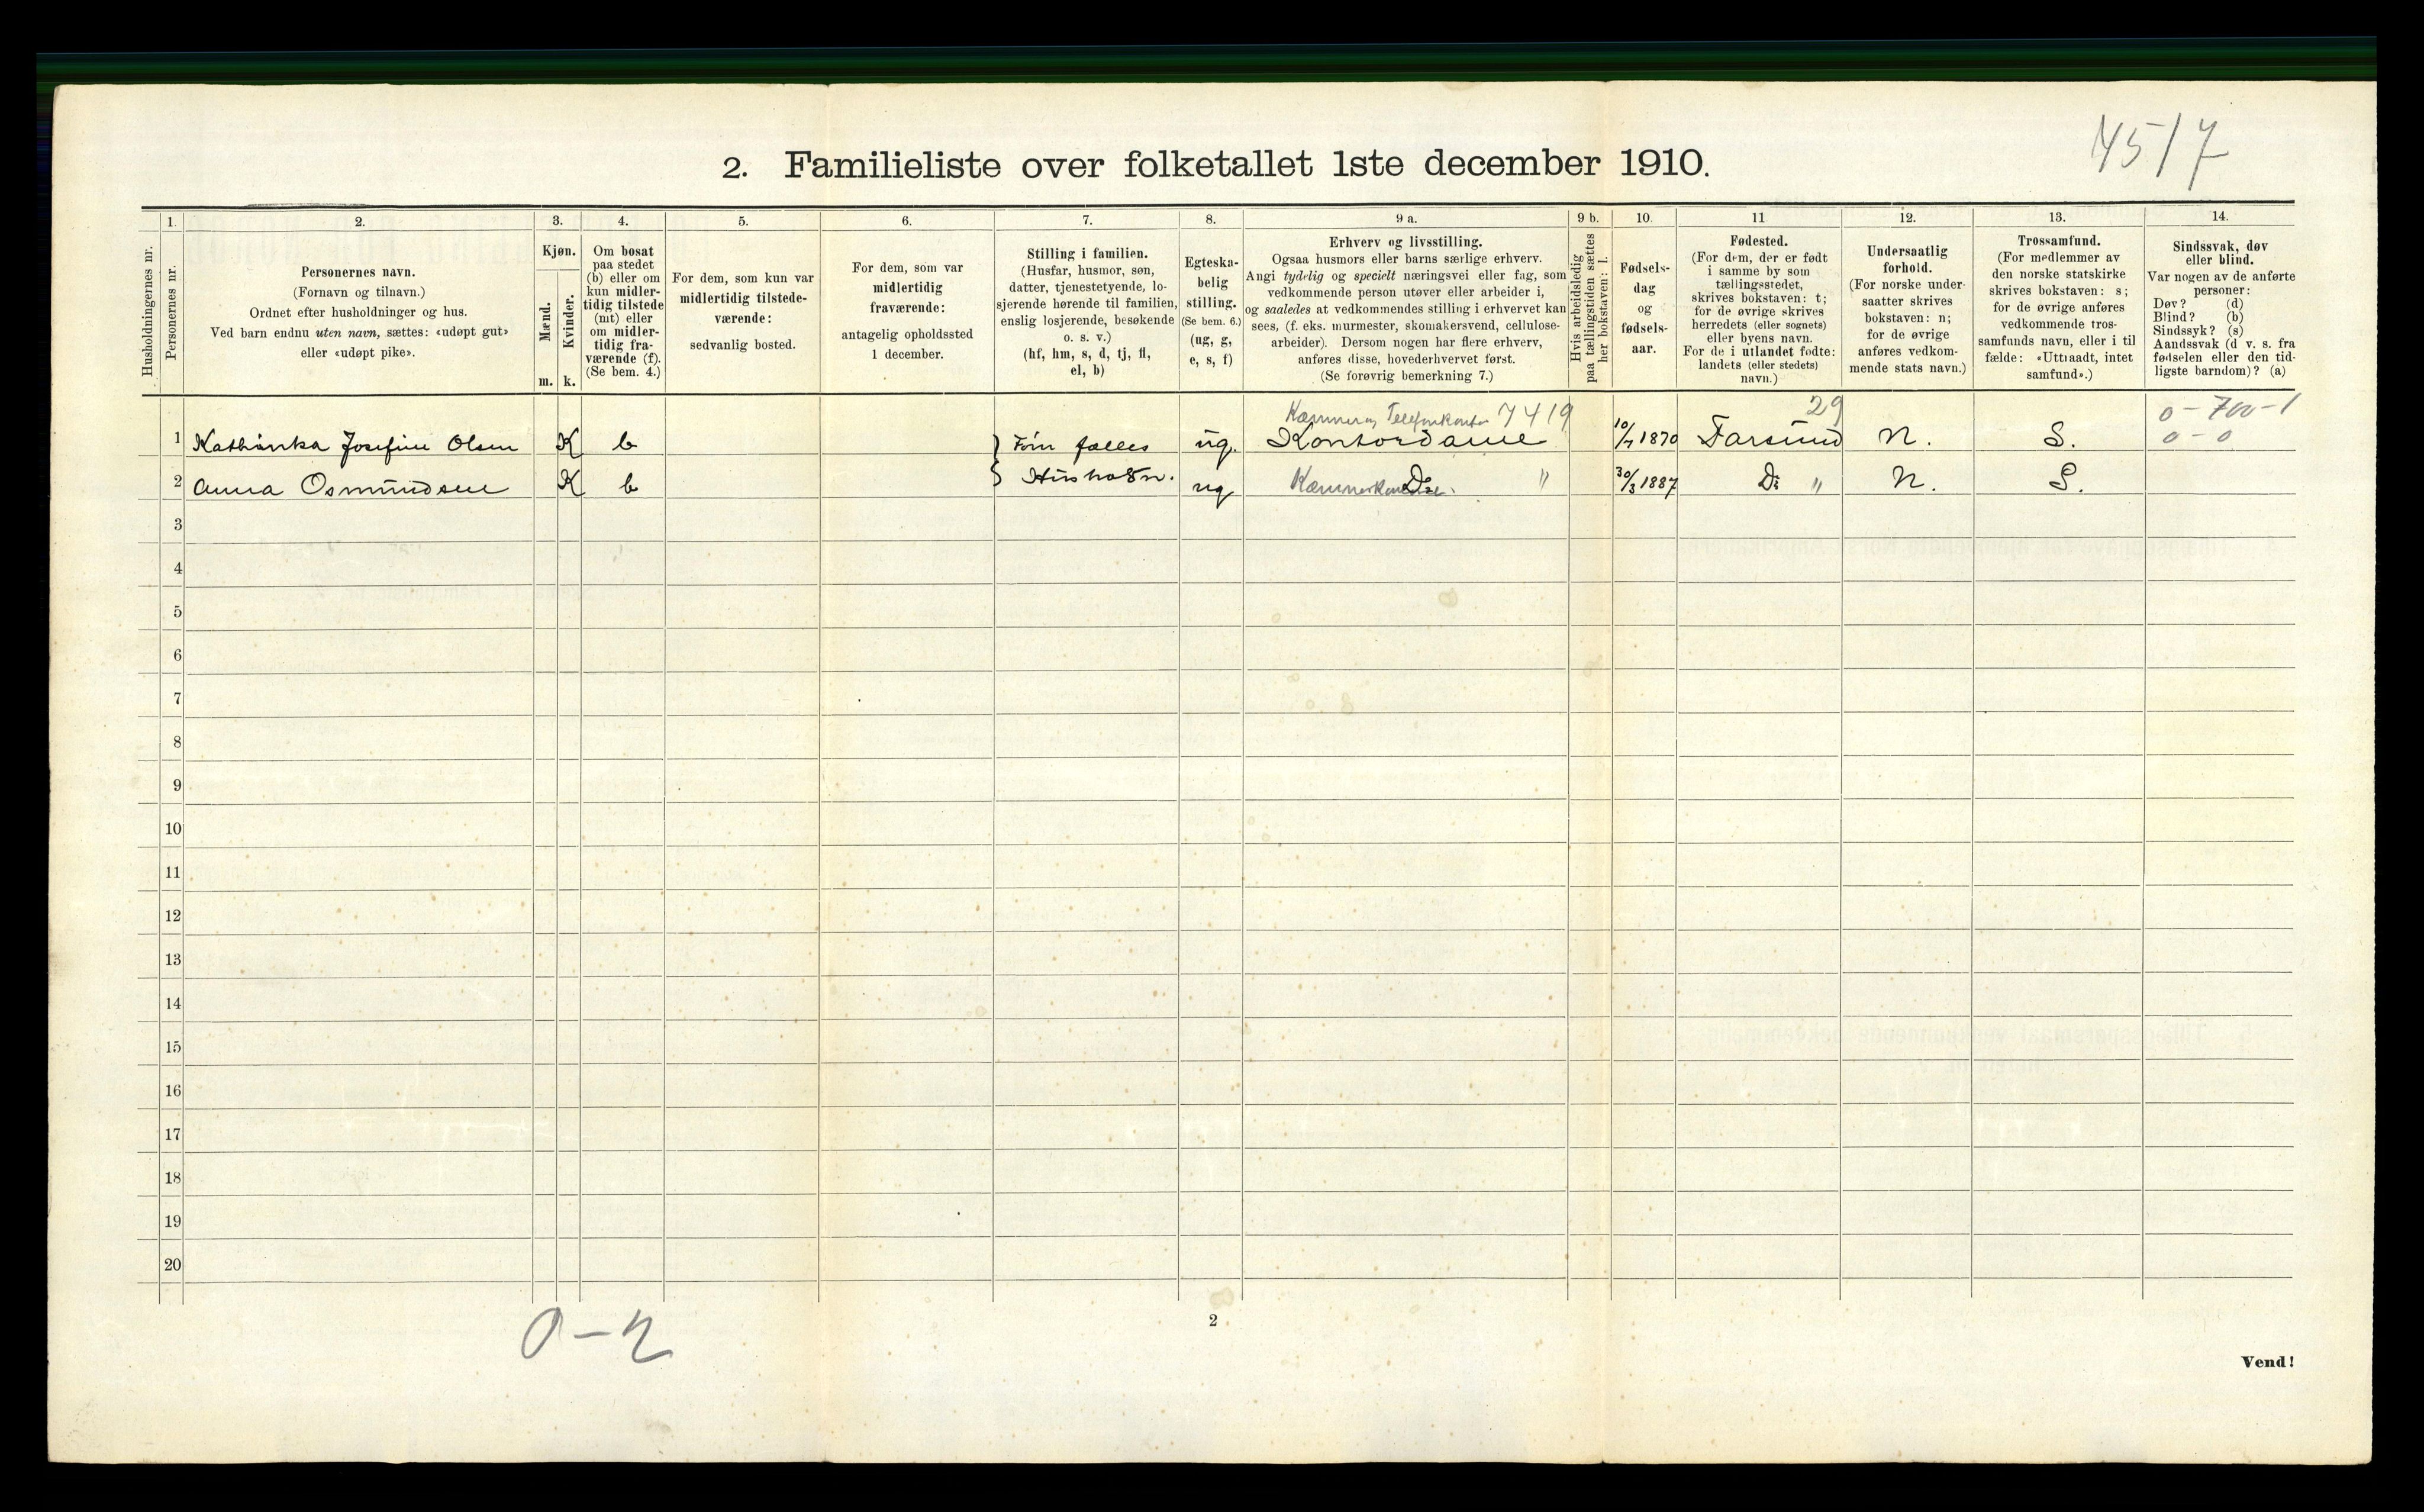 4517
2. Familieliste over folketallet 1ste december 1910.
Husholdningernes nr.
1.
Personernes nr.
2.
Personernes navn.
(Fornavn og tilnavn.)
Ordnet efter husholdninger og hus.
Ved barn endnu uten navn, sættes: «udøpt gut»
eller «udøpt pike».
3.
Kjøn.
Mænd.
Kvinder.
m. k.
4.
Om bosat
paa stedet
(b) eller om
kun midler-
tidig tilstede
(mt) eller
om midler-
tidig fra-
værende (f).
(Se bem. 4.)
5.
For dem, som kun var
midlertidig tilstede-
værende:
sedvanlig bosted.
6.
For dem, som var
midlertidig
fraværende:
antagelig opholdssted
1 december.
7.
Stilling i familien.
(Husfar, husmor, søn,
datter, tjenestetyende, lo-
sjerende hørende til familien,
enslig losjerende, besøkende
o. s. v.)
(hf, hm, s, d, tj, fl,
el, b)
8.
Egteska-
belig
stilling.
(Se bem. 6.)
(ug, g,
e, s, f)
9 a.
Erhverv og livsstilling.
Ogsaa husmors eller barns særlige erhverv.
Angi tydelig og specielt næringsvei eller fag, som
vedkommende person utøver eller arbeider i,
og saaledes at vedkommendes stilling i erhvervet kan
sees, (f. eks. murmester, skomakersvend, cellulose-
arbeider). Dersom nogen har flere erhverv,
anføres disse, hovederhvervet først.
(Se forøvrig bemerkning 7.)
9 b.
Hvis arbeidsledig
paa tællingstiden sættes
her bokstaven: l.
10.
Fødsels-
dag
og
fødsels-
aar.
11
Fødested.
(For dem, der er født
i samme by som
tællingsstedet,
skrives bokstaven: t;
for de øvrige skrives
herredets (eller sognets)
eller byens navn.
For de i utlandet fødte:
landets (eller stedets)
navn.)
12.
Undersaatlig
forhold.
(For norske under-
saatter skrives
bokstaven: n;
for de øvrige
anføres vedkom-
mende stats navn.)
13.
Trossamfund.
(For medlemmer av
den norske statskirke
skrives bokstaven: s;
for de øvrige anføres
vedkommende tros-
samfunds navn, eller i til
fælde: «Uttraadt, intet
samfund».)
14.
Sindssvak, døv
eller blind.
Var nogen av de anførte
personer:
Døv? (d)
Blind? (b)
Sindssyk? (s)
Aandssvak (d v. s. fra
fødselen eller den tid-
ligste barndom)? (a)
7419 29 0-700-1
1 Kathinka Josefine Olsen K b fælles ug. Kontordame 10/7 1870 Farsund N. S. 0-0
2 Anna Osmundsen K b Hushol5n. ug Do " 30/3 1887 Do " N. S.
3
4
5
6
7
8
9
10
11
12
13
14
15
16
17
18
19
20
0-2
2
Vend!